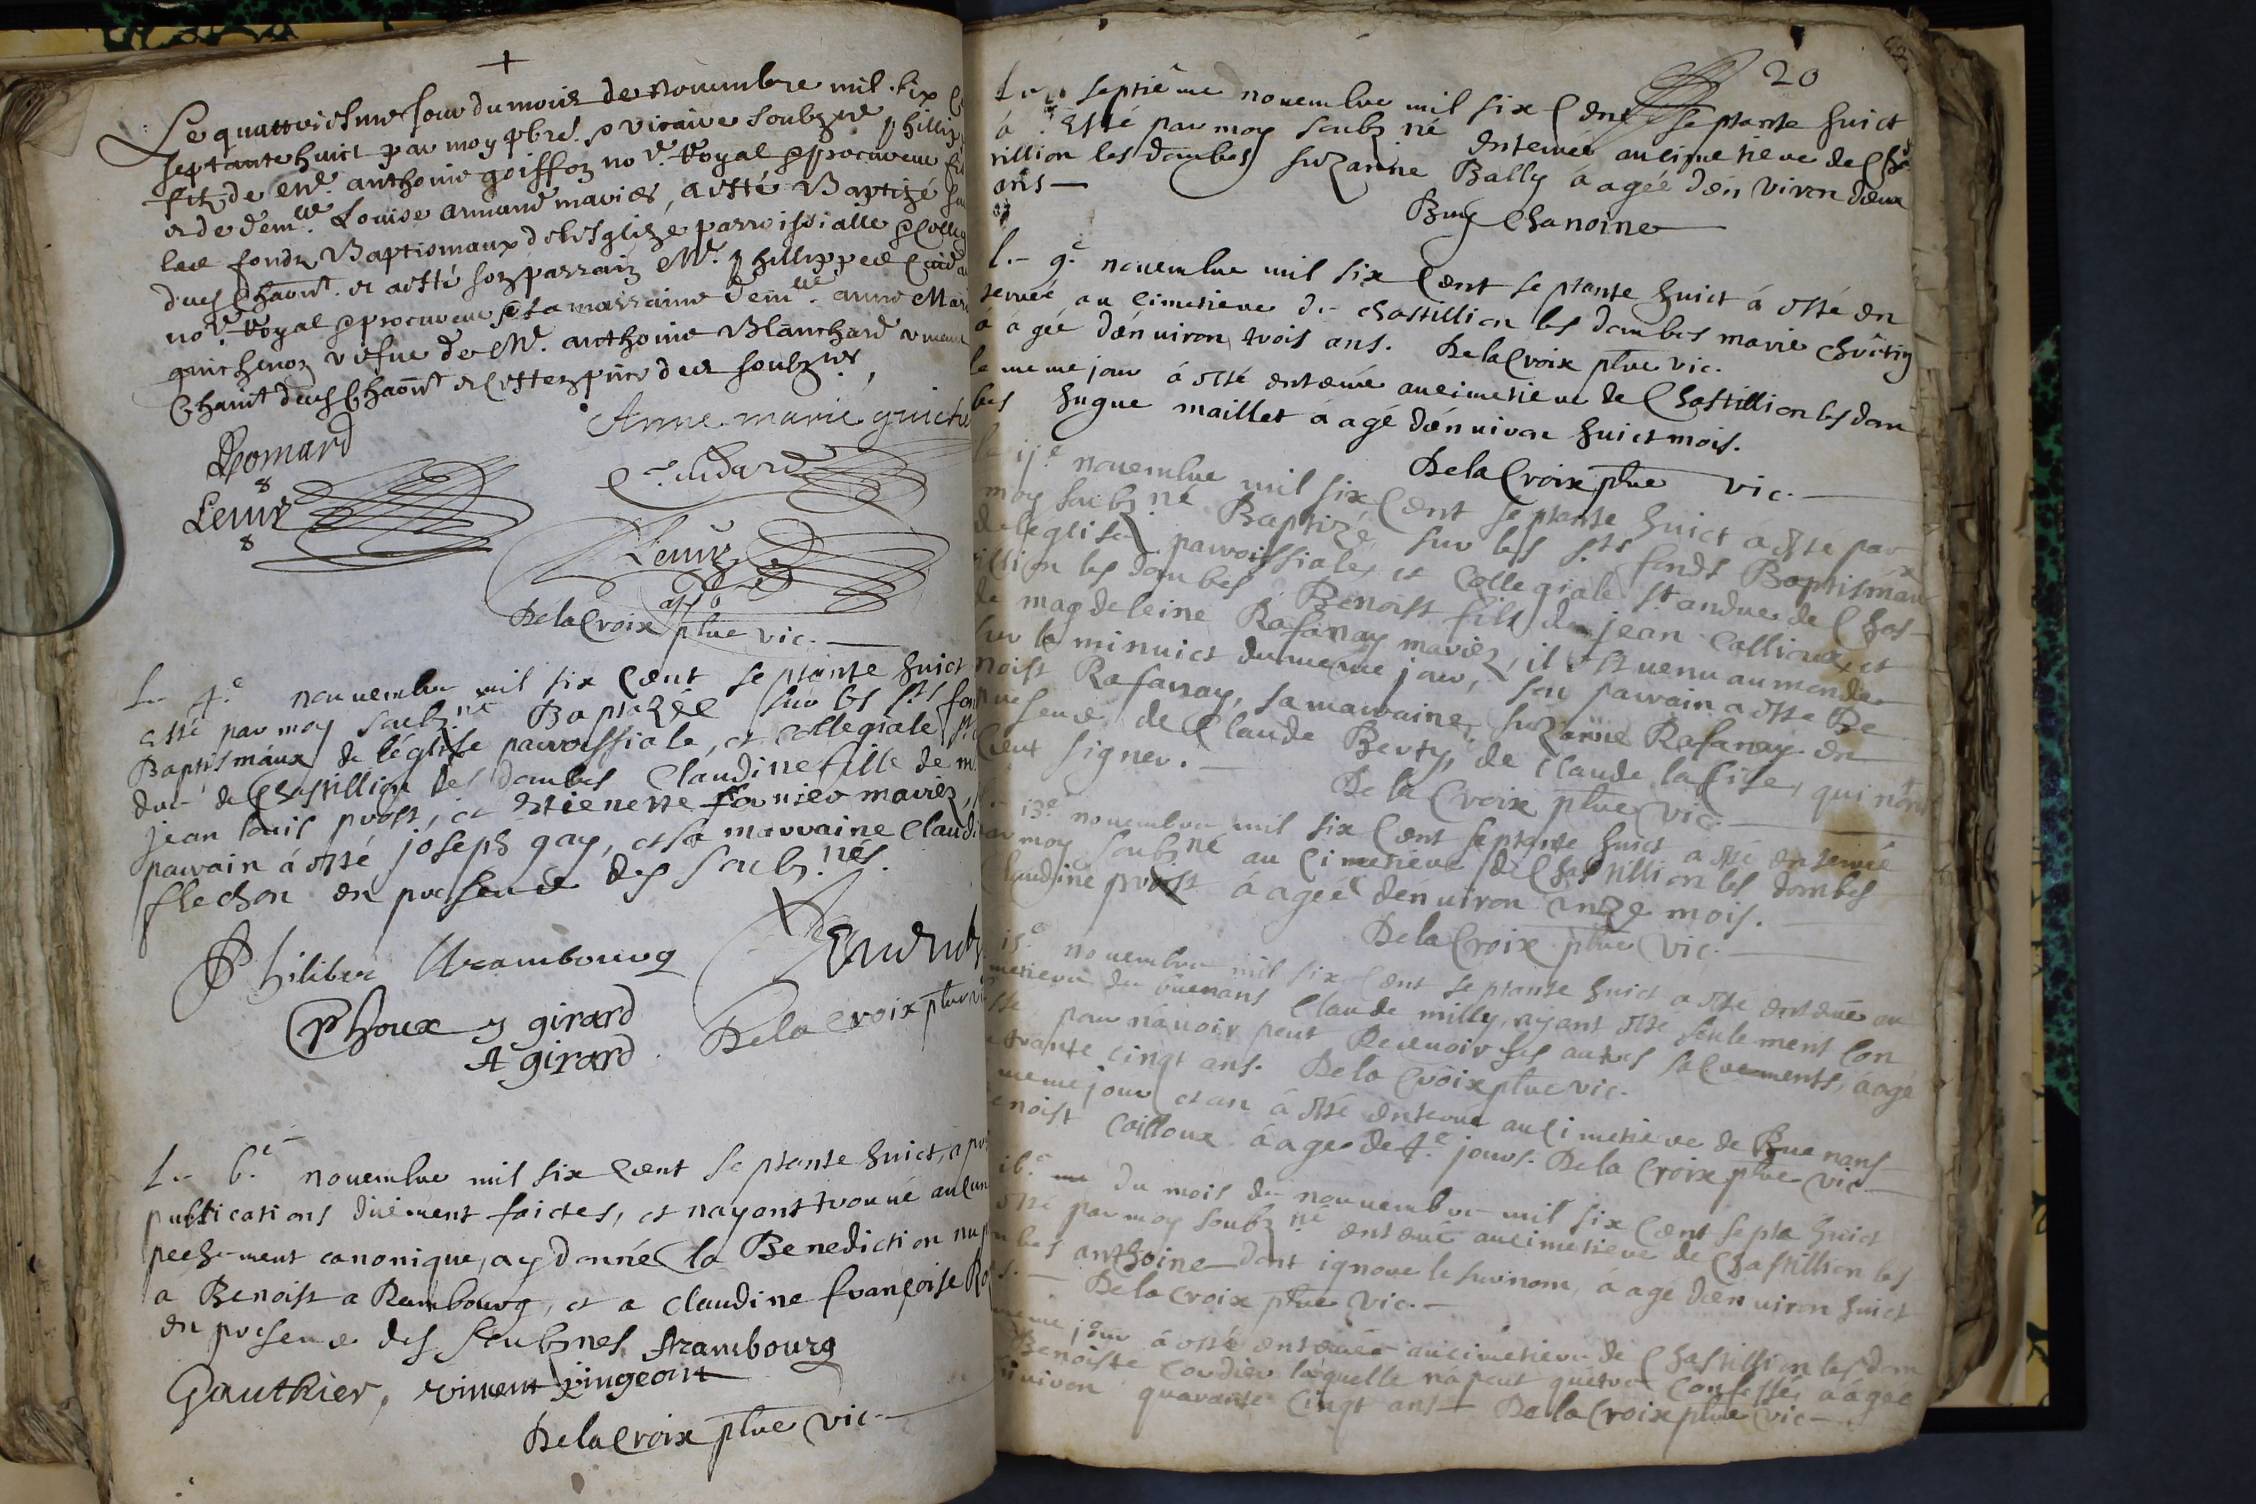 +
Le quattriesme Jour du mois de novembre mil six
septante huict par moy pbre. & vicaire soubzné phillip
filz de Me. anthoine goiffon no.re Royal & procureur
et de dem.lle Louise armand mariés, a esté Baptizé
les fondz Baptismaux de l'esglize parroissialle &
dud Chaon.t et a esté son parrain Me. phillippes Cuid
no.re Royal & procureur & sa marraine dem.lle anne Mari
guichenon vefue de Me. anthoine Blanchard viuant
dud Chaon.t et
Anne marie guiche
Lomard
Cuidard
De la Croix ptre vic.
Le 4.e nouuembre mil six cent septante huict
esté par moy soubz.né Baptizée sur les s.ts fon
Baptismaux de l'églisse parroissiale, et collegiale
dre de Chastillion les dombes Claudine fille de m
jean louis prost, et Estienette fournier mariez,
parrain à esté joseph gay, et sa marraine Claudi
flechon en presence des soubz.nés.
Philiber Arambourg
Phoux girard
A girard
De la croix ptre vi
Le 6.e nouembre mil six cent septante huict, a pr
publications düement faictes, et nayant trouué aucun
peeschement canonique, ay donné la Benediction nup
a Benoist a Rambourg, et a Claudine françoise Ro
en presence des soubznes Arambourg
Gauthier, vincent pingeont
De la Croix ptre vic.
20
Le septiême nouembre mil six Cent septante huict
à Esté par moy soubz né enterrée au cimetiere de Chas
tillion les dombes Suzanne Bally à agée d'environ deux
ans
Buy Chanoine
Le 9.e nouembre mil six Cent septante huict à esté en
terrée au cimetiere de chastillion les dombes marie chrêtin
à agée d'enuiron trois ans. De la Croix ptre vic.
le meme jour à esté enterré au cimetiere de Chastillion les dom
bes hugue maillet à agé d'enuiron huict mois.
De la Croix ptre vic.
le 11.e nouembre mil six Cent septante huict a esté par
moy soubz.né Baptizé sur les s.ts fonds Baptismaux
de l'eglise parroissiale, et collegiale s.t andre de Chas
tillion les dombes Benoist fils de jean Callioux, et
de magdeleine Rafanay mariez, il est uenu au monde
sur le minuict du meme jour, son parrain a esté Be
noist Rafanay, sa marraine, Suzanne Rafanay en
presence de Claude Berty, de Claude la Cise, qui n'ont
sceut signer.
De la Croix ptre vic.
13.e nouembre mil six Cent septante huict a esté enterrée
par moy soubz.né au cimetiere de Chastillion les dombes
Claudine prost à agée d'enuiron unze mois.
De la Croix ptre vic.
15.e nouembre mil six Cent septante huict a esté enterré au
metiere de büenans Claude milly, ayant esté seulement con
fessé pour n'auoir peut Receuoir les autres sacrements, à agé
trante cinqt ans. De la Croix ptre vic.
meme jour et an à esté enterré au cimetiere de Buenans
enoist Cailloux à agé de 4.e jours. De la Croix ptre vic.
16.e du mois de nouuembre mil six Cent septa huict
esté par moy soubz né enterré au cimetiere de Chastillion les
mbes anthoine dont ignore le surnom, à agé d'enuiron huict
De la Croix ptre vic.
meme jour à esté enterrée au cimetiere de Chastillion les dom
Benoiste Cordier laquelle na peut quetre Confessée à agée
enuiron quarante Cinqt ans De la Croix ptre vic